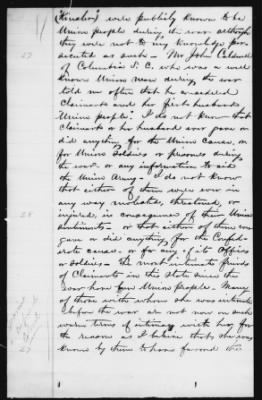 were publicly known to be
Union people during the war although
they were not to my knowledge per-
secuted as such - Mr John Caldwell
of Columbia S. C. who was a well
known Union man during the war
told me often that he considered
Claimants and her first husband
Union people. I do not know that
Claimants or her husband ever gave or
27
did anything for the Union cause, or
for Union soldiers or prisoners during
the war or any information to aid
the Union Army - I do not know
that either of them were ever in
any way molested, threatened, or
injured in consequence of their Union
28
sentiments - or that either of them ever
gave or did anything for the Confed-
erate cause - or for any of its Officers
or soldiers - The most intimate friends
of Claimants in this State since the
war have been Union people - Many
of those with whom she was intimate
before the war are not now on such
warm terms of intimacy with her, for
the reason as I believe that she was
known by them to have favored the